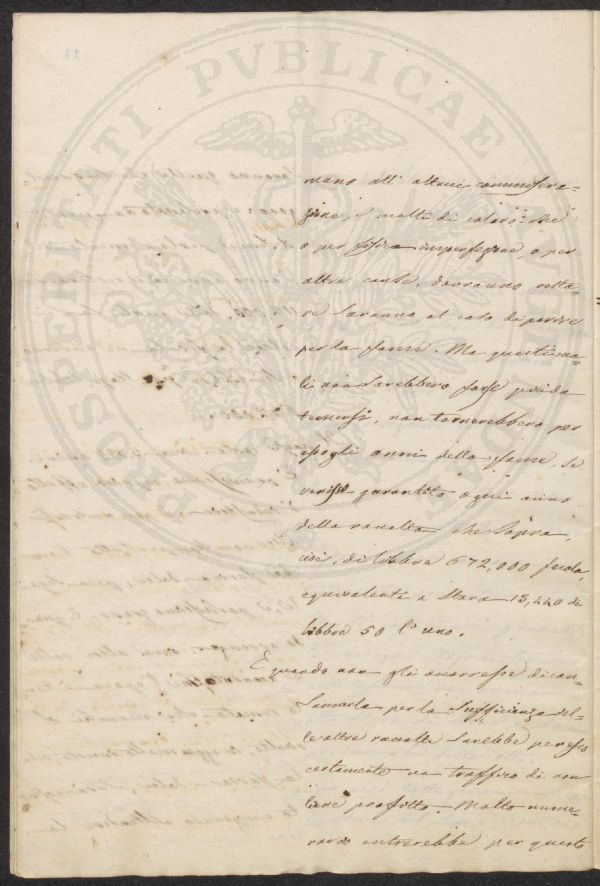 PROSPERITATI PVBLICAE
mano all' altrui commisera=
zione, e molti di coloro che
o per fisica imperfezione, o per
altre cause, dovranno resta=
re saranno al caso di perire
per la fame. Ma questi ma=
li non sarebbero forse più da
temersi, non tornerebbero per
spogli anni della fame, se
venisse garantito ogni anno
della raccolta che sopra,
cioè, di libbre 672,000 fecola,
equivalenti a Stara 13,440 di
libbre 50 l'uno.
E quando non gli occorresse di con=
sumarla per la sufficienza del=
le altre raccolte sarebbe per esso
certamente un traffico di non
lieve profitto. Molto nume=
rario entrerebbe per questo